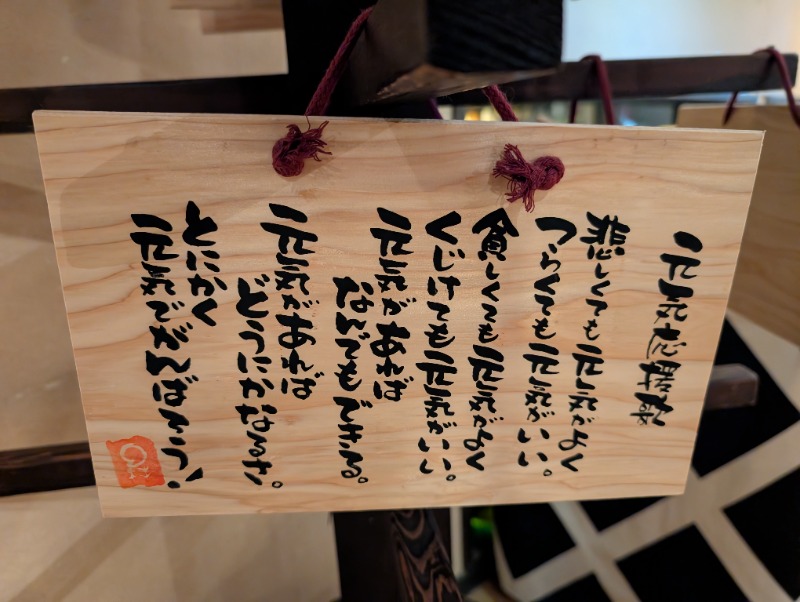 元気応援歌
悲しくても元気がよく
つらくても元気がいい。
貧しくても元気がよく
くじけても元気がいい。
元気があれば
なんでもできる。
元気があれば
どうにかなるさ。
とにかく
元気でがんばろう!